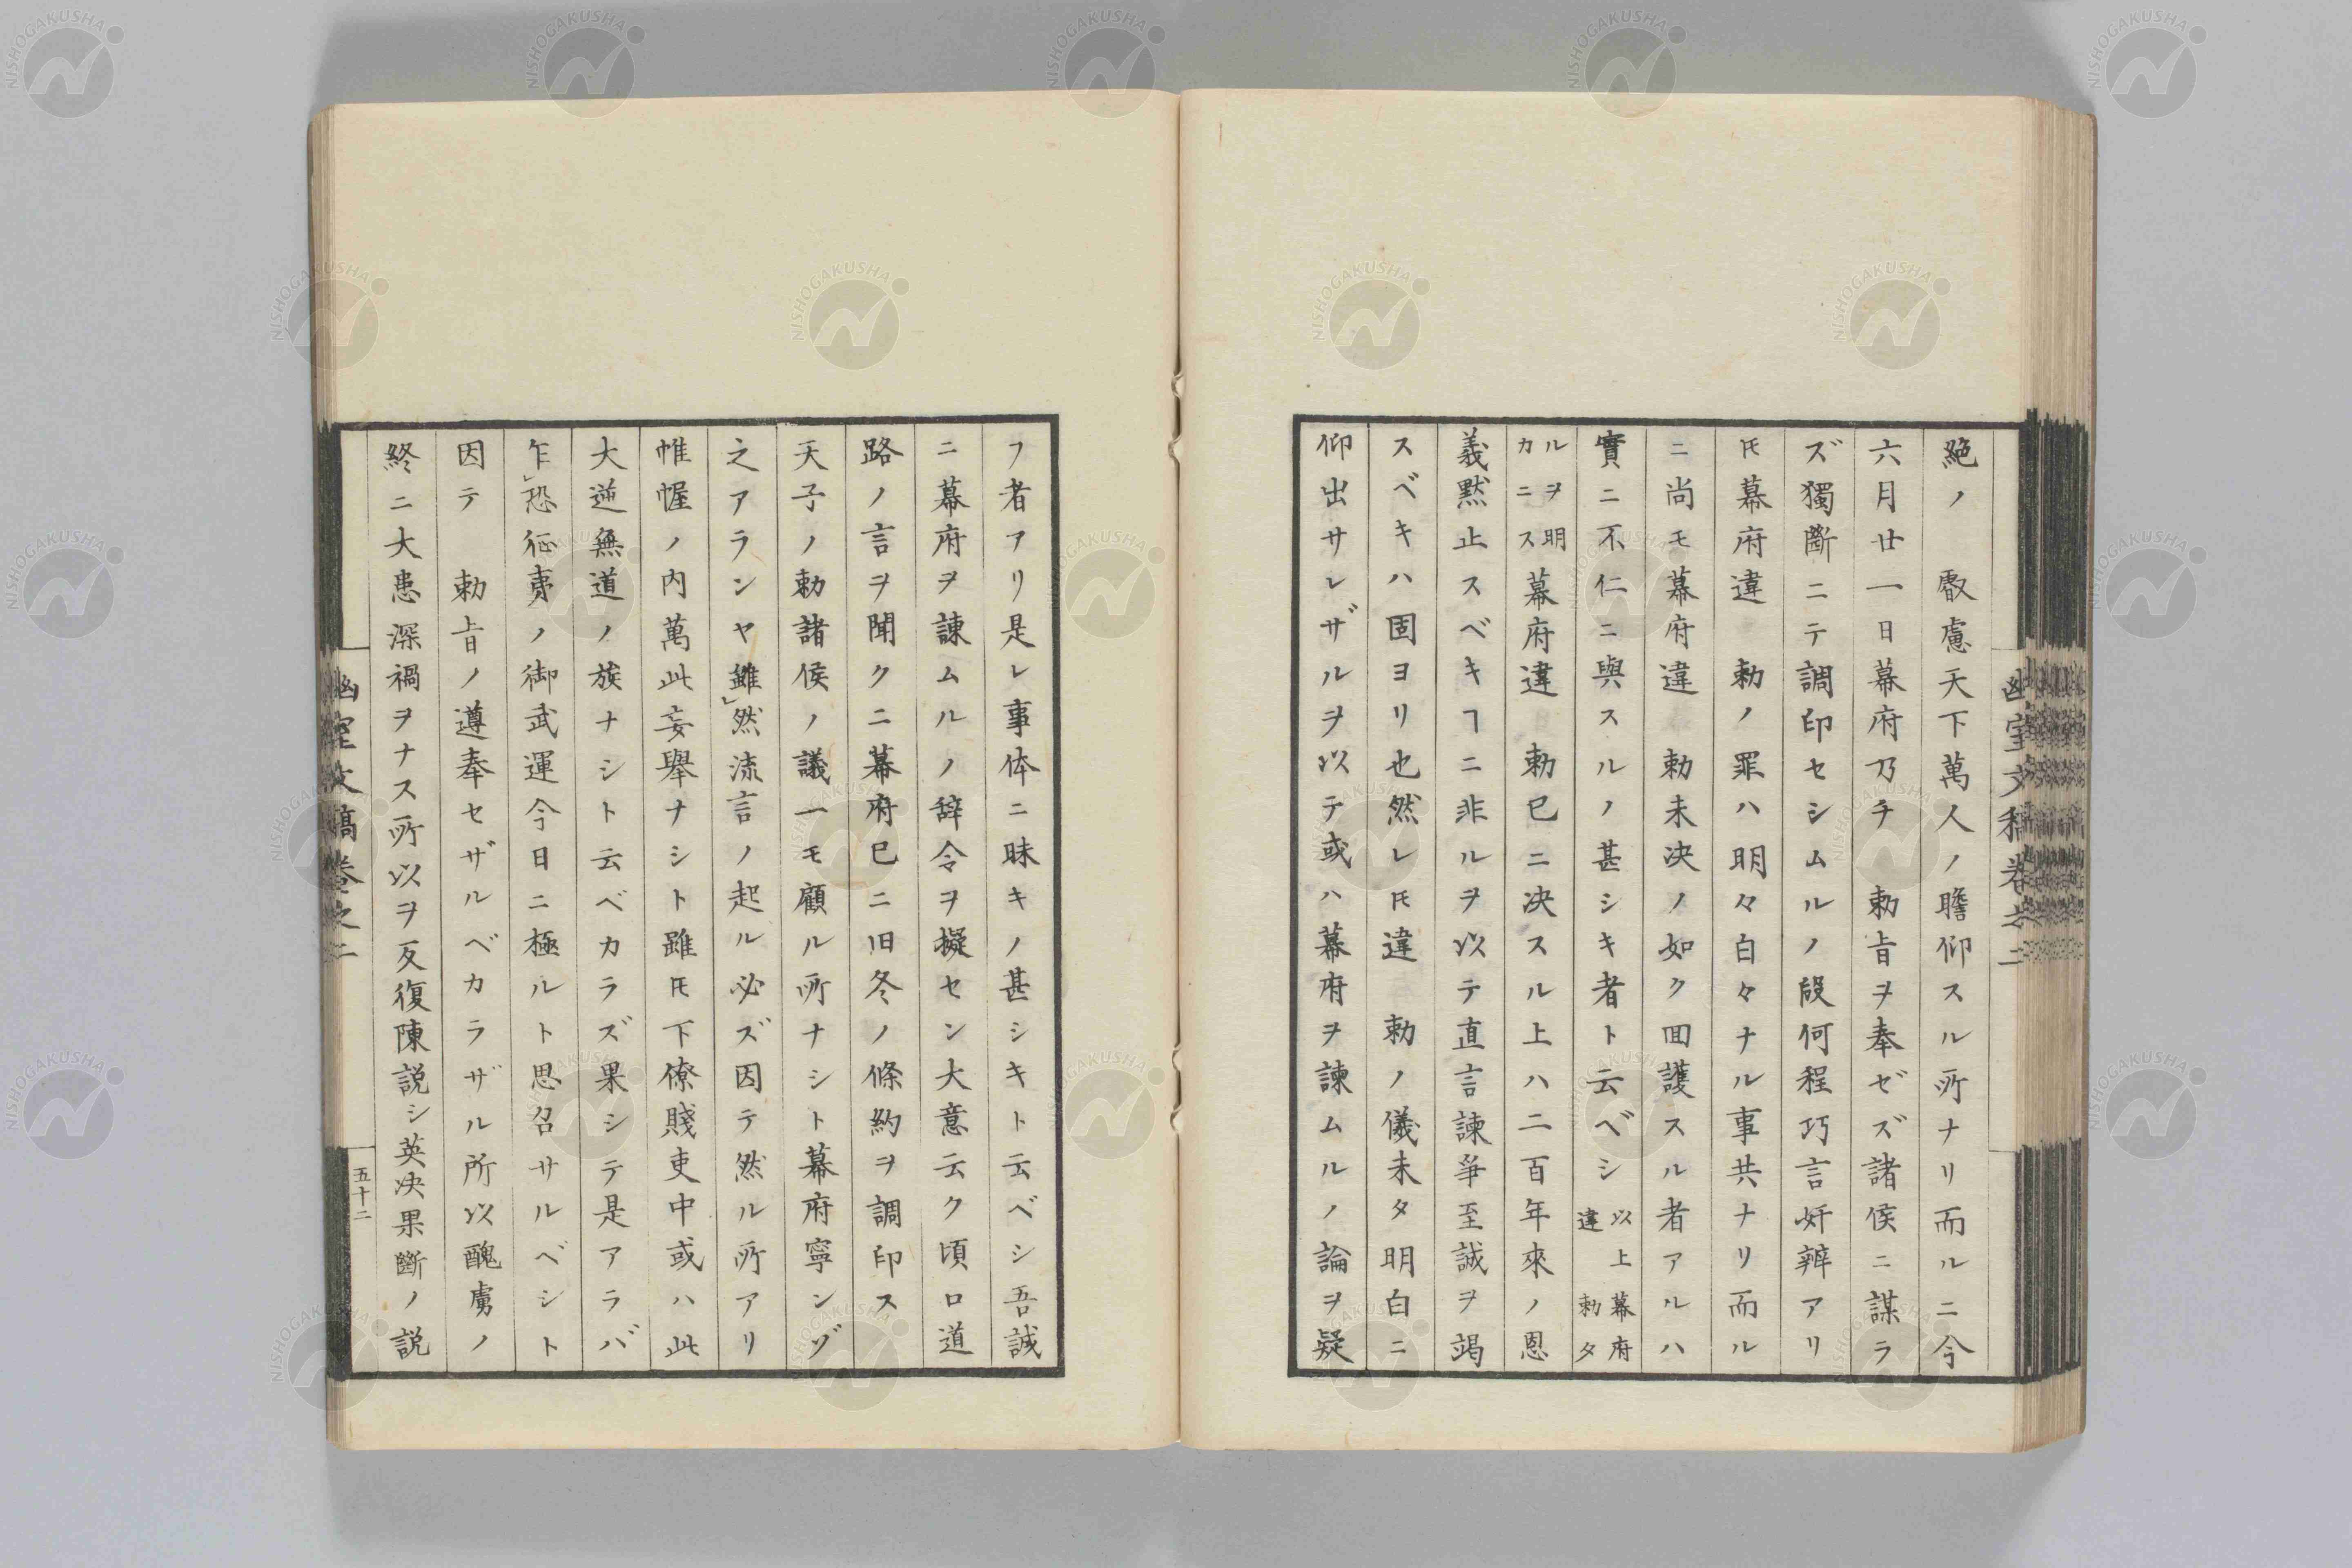 絶ノ　叡慮天下萬人ノ瞻仰スル所ナリ而ルニ今
六月廿一日幕府乃チ　勅旨ヲ奉ゼズ諸侯ニ謀ラ
ズ獨斷ニテ調印セシムルノ段何程巧言奸辨アリ
𪜈幕府違　勅ノ罪ハ明々白々ナル事共ナリ而ル
ニ尚モ幕府違　勅未決ノ如ク回護スル者アルハ
實ニ不仁ニ與スルノ甚シキ者ト云ベシ以上幕府違勅タ
ルヲ明明カニス幕府違　勅已ニ決スル上ハ二百年來ノ恩
義黙止スベキヿニ非ルヲ以テ直言諫爭至誠ヲ竭
スベキハ固ヨリ也然レ𪜈違　勅ノ儀未タ明白ニ
仰出サレザルヲ以テ或ハ幕府ヲ諫ムルノ論ヲ疑
フ者アリ是レ事体ニ昧キノ甚シキト云ベシ吾誠
ニ幕府ヲ諫ムルノ辞令ヲ擬セン大意云ク頃ロ道
路ノ言ヲ聞クニ幕府已ニ旧冬ノ條約ヲ調印ス
天子ノ勅諸侯ノ議一モ顧ル所ナシト幕府寧ンゾ
之アランヤ雖」然流言ノ起ル必ズ因テ然ル所アリ
帷幄ノ内萬此妄擧ナシト雖𪜈下僚賤吏中或ハ此
大逆無道ノ族ナシト云ベカラズ果シテ是アラバ
乍」恐征夷ノ御武運今日ニ極ルト思召サルベシト
因テ　勅旨ノ遵奉セザルベカラザル所以醜虜ノ
終ニ大患深禍ヲナス所以ヲ反復陳説シ英決果斷ノ説
幽室文稿卷之二
五十二
幽室文稿卷之二
NISHOGAKUSHA